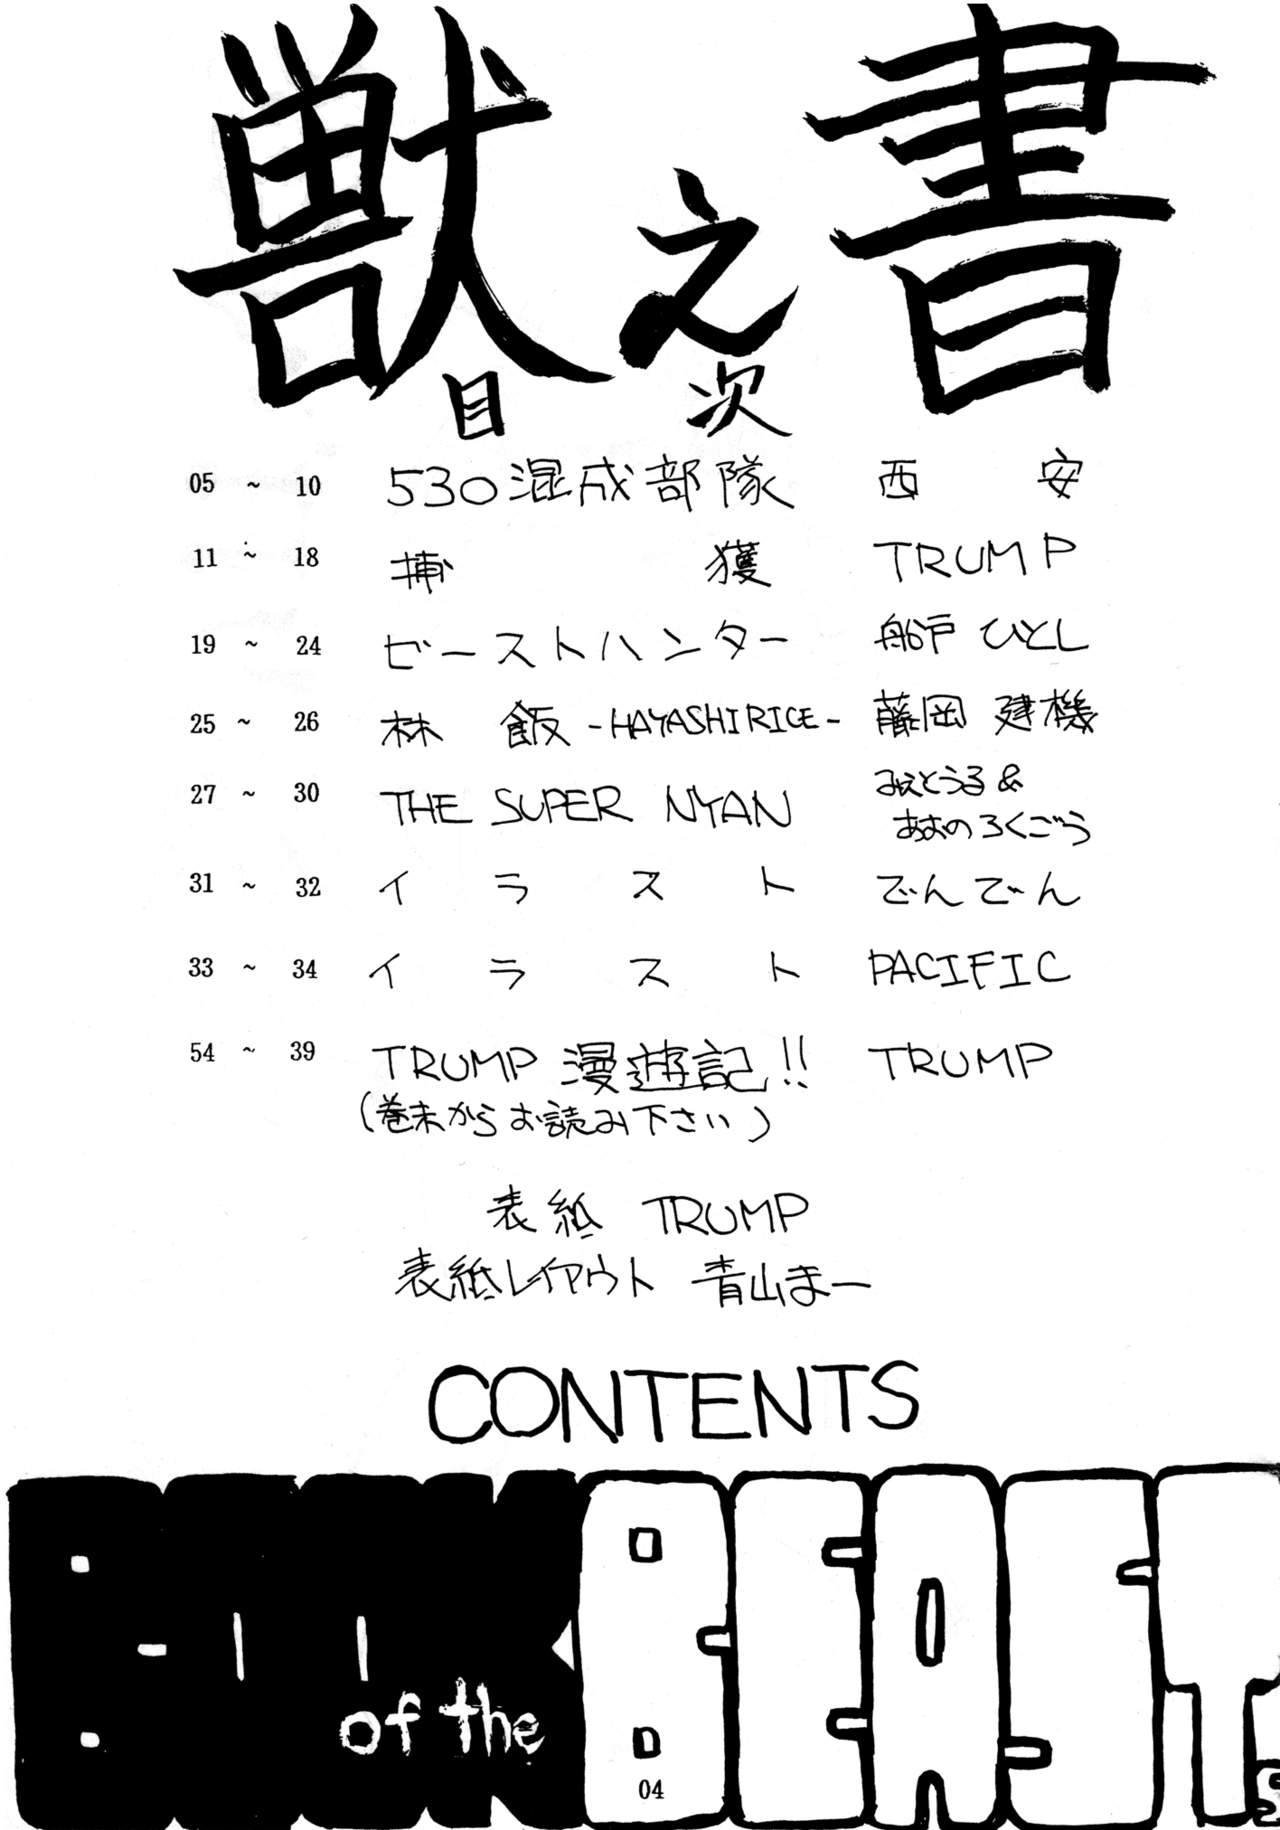 獣之書
目次
05 ~ 10 530混成部隊 西安
11 ~ 18 捕獲 TRUMP
19 ~ 24 ビーストハンター 船戸ひとし
25 ~ 26 林飯 -HAYASHI RICE- 藤岡建機
27 ~ 30 THE SUPER NYAN みぇとうる&
あおのろくごう
31 ~ 32 イラスト でんでん
33 ~ 34 イラスト PACIFIC
54 ~ 39 TRUMP漫遊記!! TRUMP
(巻末からお読み下さい)
表紙 TRUMP
表紙レイアウト 青山まー
CONTENTS
BOOK of the BEASTS
04